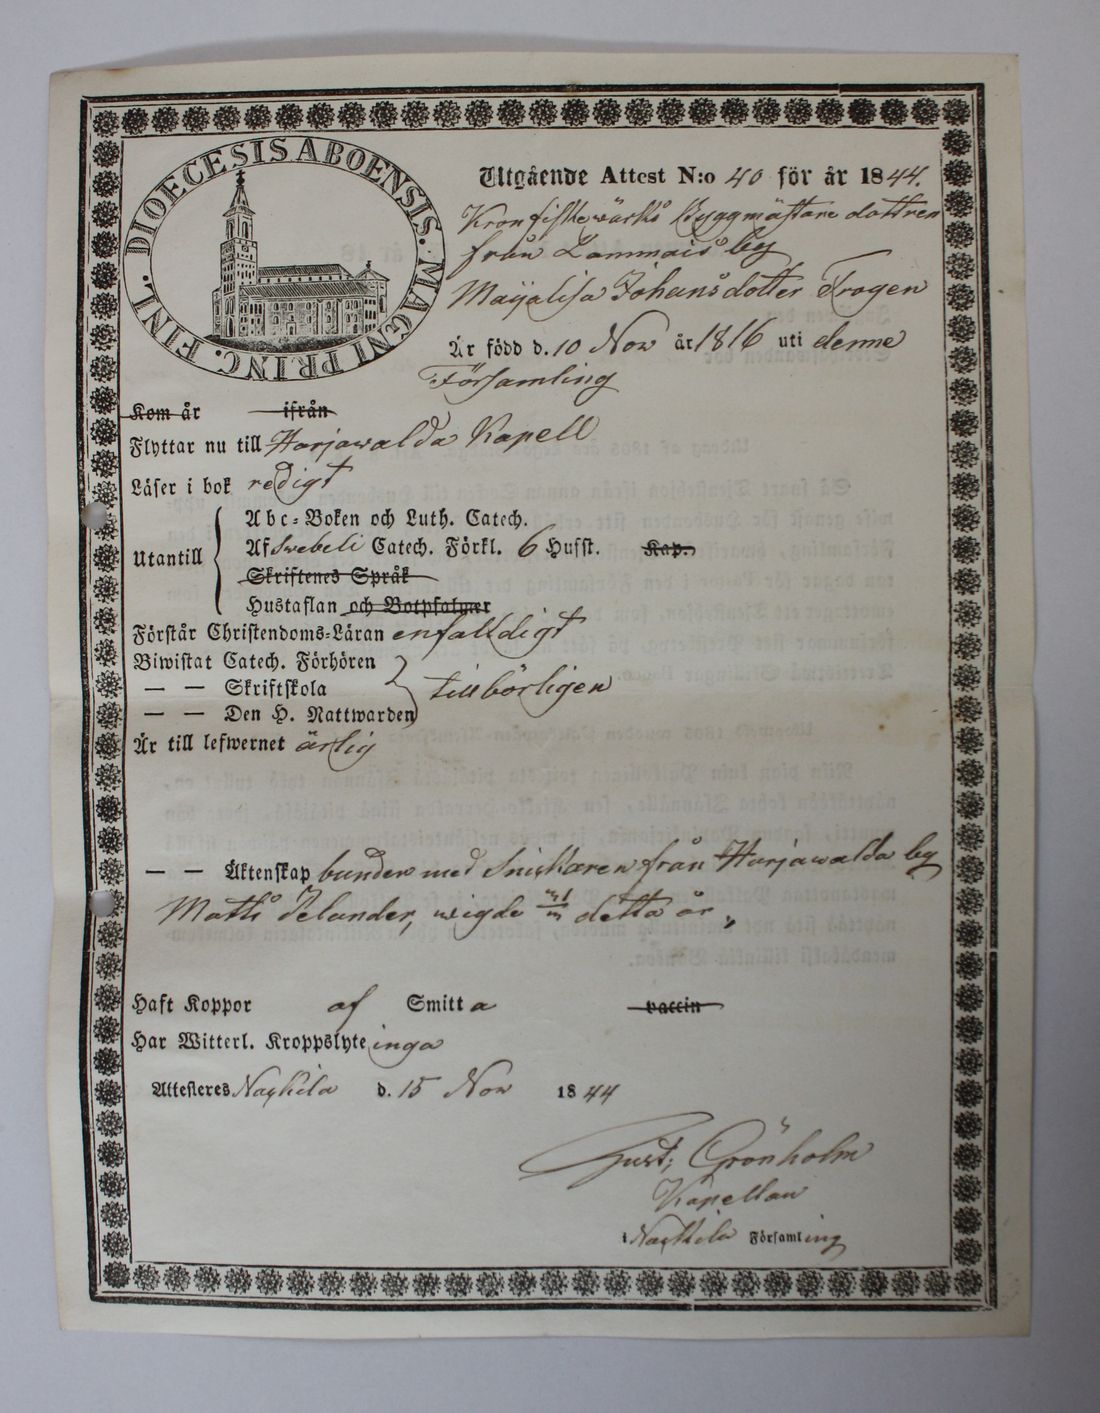 DIOECESIS ABOENSIS. MAGNI PRINC. FINL.
Utgående Attest N:o 40 för år 1844.
Kronfiskewärks Byggmästare dottren
från Lammais by
Majalisa Johansdotter Trogen
Är född d. 10 Nov år 1816 uti denne
Församling
Kom år ifrån
Flyttar nu till Harjawalda Kapell
Läser i bok redigt
Abc-Boken och Luth. Catech.
Utantill Af Svebeli Catech. Förkl. 6 Hufst. Kap.
Skriftenes Språk
Hustaflan och Botpsalmer
Förstår Christendoms-Läran enfalldigt
Biwistat Catech. Förhören
— — Skriftskola tillbörligen
— — Den H. Nattwarden
Är till lefwernet ärlig
— — Äktenskap bunden med Snickaren från Harjawalda by
Matts Pelander, wigde detta år,
Haft Koppor af Smitta vaccin
Har Witterl. Kroppslyte inga
Attesteres Nakkila d. 15 Nov 1844
Gust: Grönholm
Kapellan
i Nakkila Församling